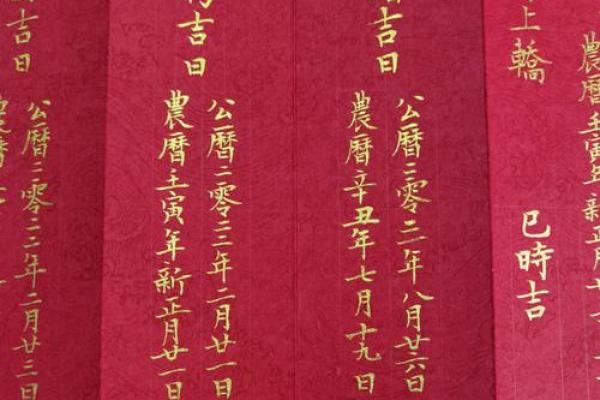 農曆壬寅年新正月
上轎
巳時吉
吉日
公曆二零二一年八月廿六日
農曆辛丑年七月十九日
吉日
公曆二零二二年二月廿一日
農曆壬寅年新正月廿一日
吉日
公曆二零二二年二月廿三日
農曆